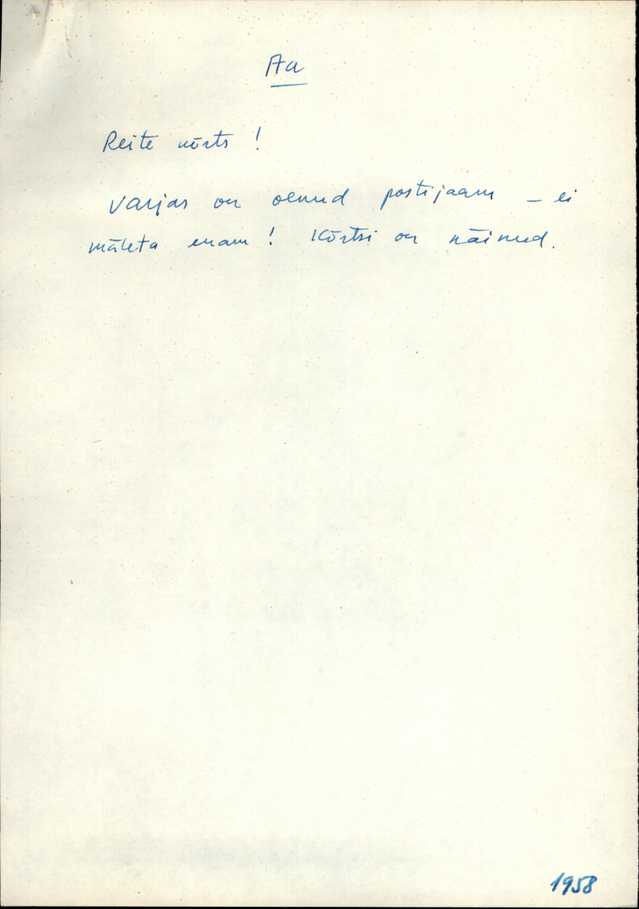 Aa
Reite kõrts!
Varjas on olnud postijaam – ei
mäleta enam! Kõrtsi on näinud.
1958